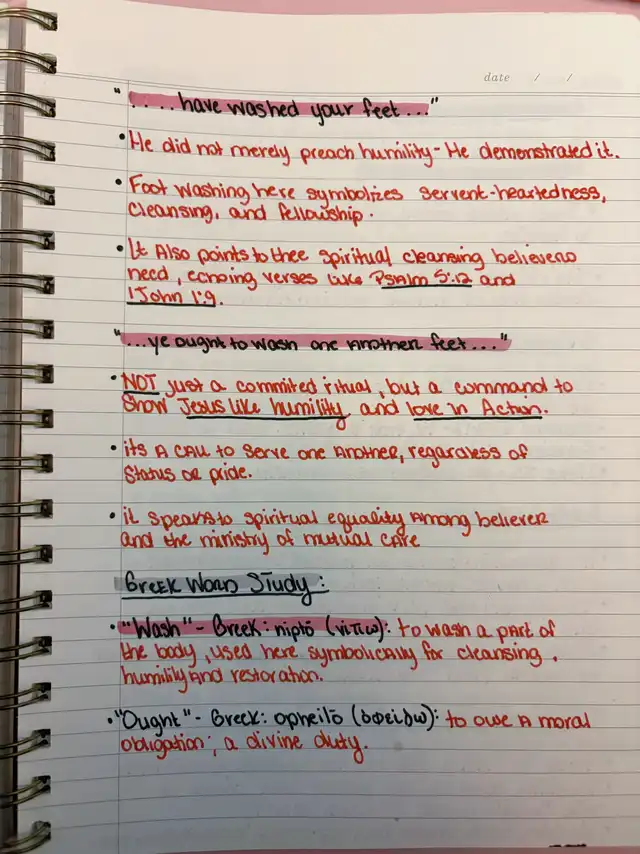 date / /
".....have washed your feet..."
• He did not merely preach humility- He demonstrated it.
• Foot washing here symbolizes servent-heartedness,
cleansing, and fellowship.
• It Also points to thee spiritual cleansing believers
need, echoing verses like Psalm 51:12 and
1 John 1:9.
"...ye ought to wash one another feet..."
• NOT just a commited ritual, but a command to
show Jesus like humility and love in Action.
• its A CALL to serve one Another, regardless of
status or pride.
• it speaks to spiritual equality Among believer
and the ministry of mutual care
Greek Word Study:
• "Wash" - Greek: niptō (νίπτω): to wash a part of
the body, used here symbolically for cleansing,
humility and restoration.
• "Ought" - Greek: opheilō (ὀφείλω): to owe A moral
obligation; a divine duty.